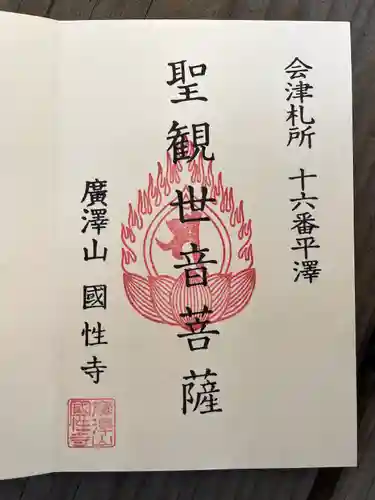 会津札所 十六番平澤
聖観世音菩薩
廣澤山 國性寺
廣澤山
國性寺